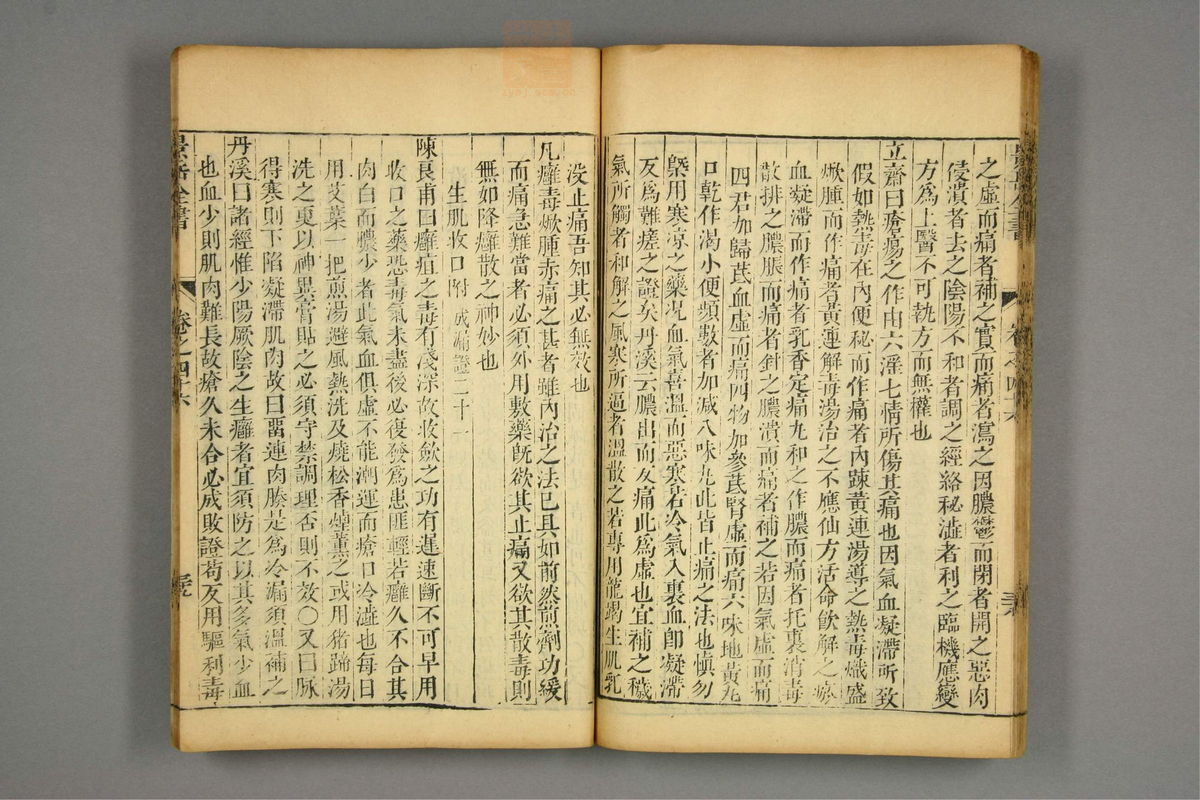 之虛而痛者補之實而痛者瀉之因膿鬱而閉者開之惡肉
侵潰者去之陰陽不和者調之經絡秘澁者利之臨機應變
方為上醫不可執方而無權也
立齋曰瘡瘍之作由六淫七情所傷其痛也因氣血凝滯所致
假如熱毒在內便秘而作痛者內踈黃連湯導之熱毒熾盛
焮腫而作痛者黃連解毒湯治之不應仙方活命飲解之瘀
血凝滯而作痛者乳香定痛丸和之作膿而痛者托裏消毒
散排之膿脹而痛者針之膿潰而痛者補之若因氣虛而痛
四君加歸芪血虛而痛四物加參芪腎虛而痛六味地黃丸
口乾作渴小便頻數者加减八味丸此皆止痛之法也慎勿
槩用寒凉之藥况血氣喜溫而惡寒若冷氣入裏血即凝滯
反為難瘥之證矣丹溪云膿出而反痛此為虛也宜補之穢
氣所觸者和解之風寒所逼者溫散之若專用龍竭生肌乳
景岳全書
卷之四十六
没止痛吾知其必無效也
凡癰毒焮腫赤痛之甚者雖內治之法已具如前然煎劑功緩
而痛急難當者必須外用敷藥既欲其止痛又欲其散毒則
無如降癰散之神妙也
生肌收口附成漏證二十一
陳良甫曰癰疽之毒有淺深故收斂之功有遲速斷不可早用
收口之藥恐毒氣未盡後必復發為患匪輕若癰久不合其
肉白而膿少者此氣血俱虛不能潮運而瘡口冷澁也每日
用艾葉一把煎湯避風熱洗及燒松香烟薰之或用猪蹄湯
洗之更以神異膏貼之必須守禁調理否則不效○又曰脉
得寒則下陷凝滯肌肉故曰畱連肉腠是為冷漏須溫補之
丹溪曰諸經惟少陽厥陰之生癰者宜須防之以其多氣少血
也血少則肌肉難長故瘡久未合必成敗證苟反用驅利毒
景岳全書
卷之四十六